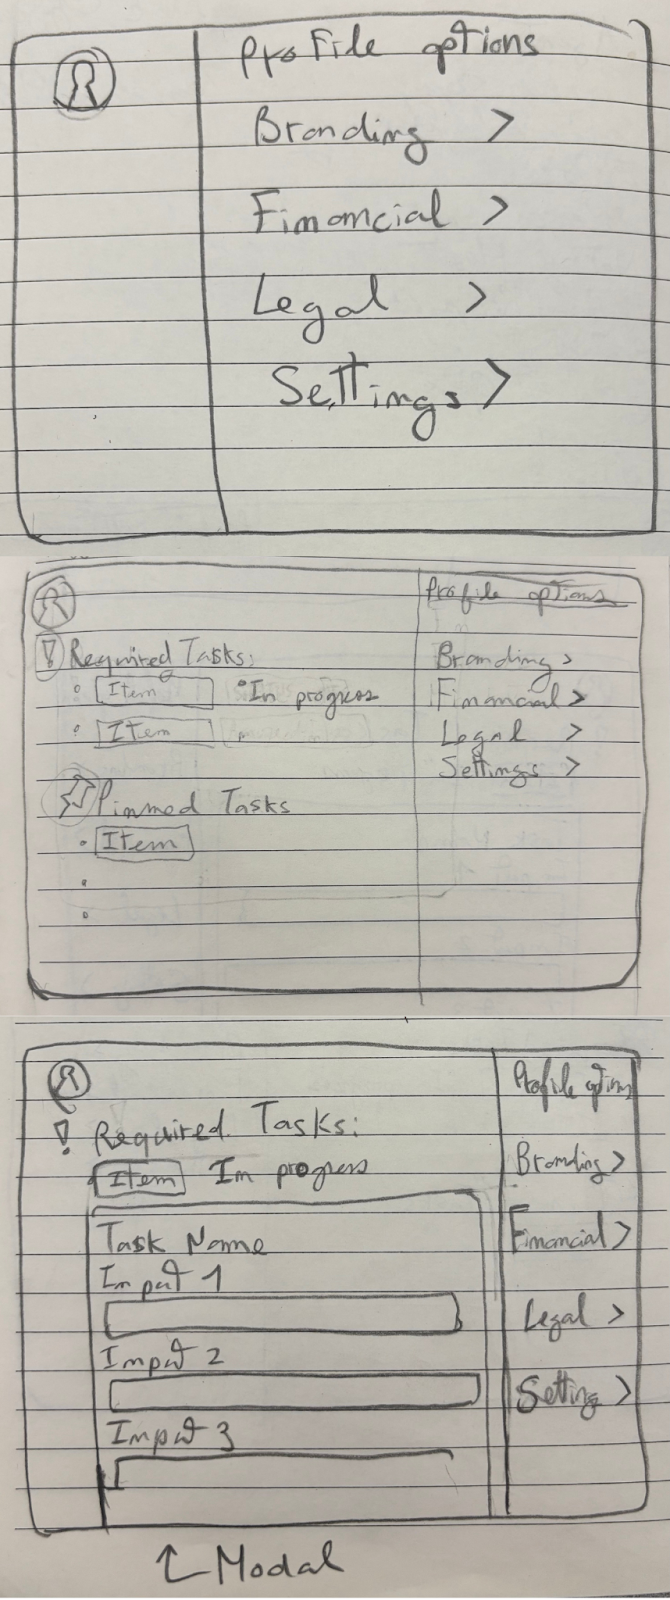 Profile options
Branding >
Financial >
Legal >
Settings >
Profile options
! Required Tasks:
Item • In progres
Item
Branding >
Financial >
Legal >
Settings >
Pinned Tasks
Item
Profile option
! Required Tasks:
Item In progress
Task Name
Input 1
Input 2
Input 3
Branding >
Financial >
Legal >
Setting >
Modal